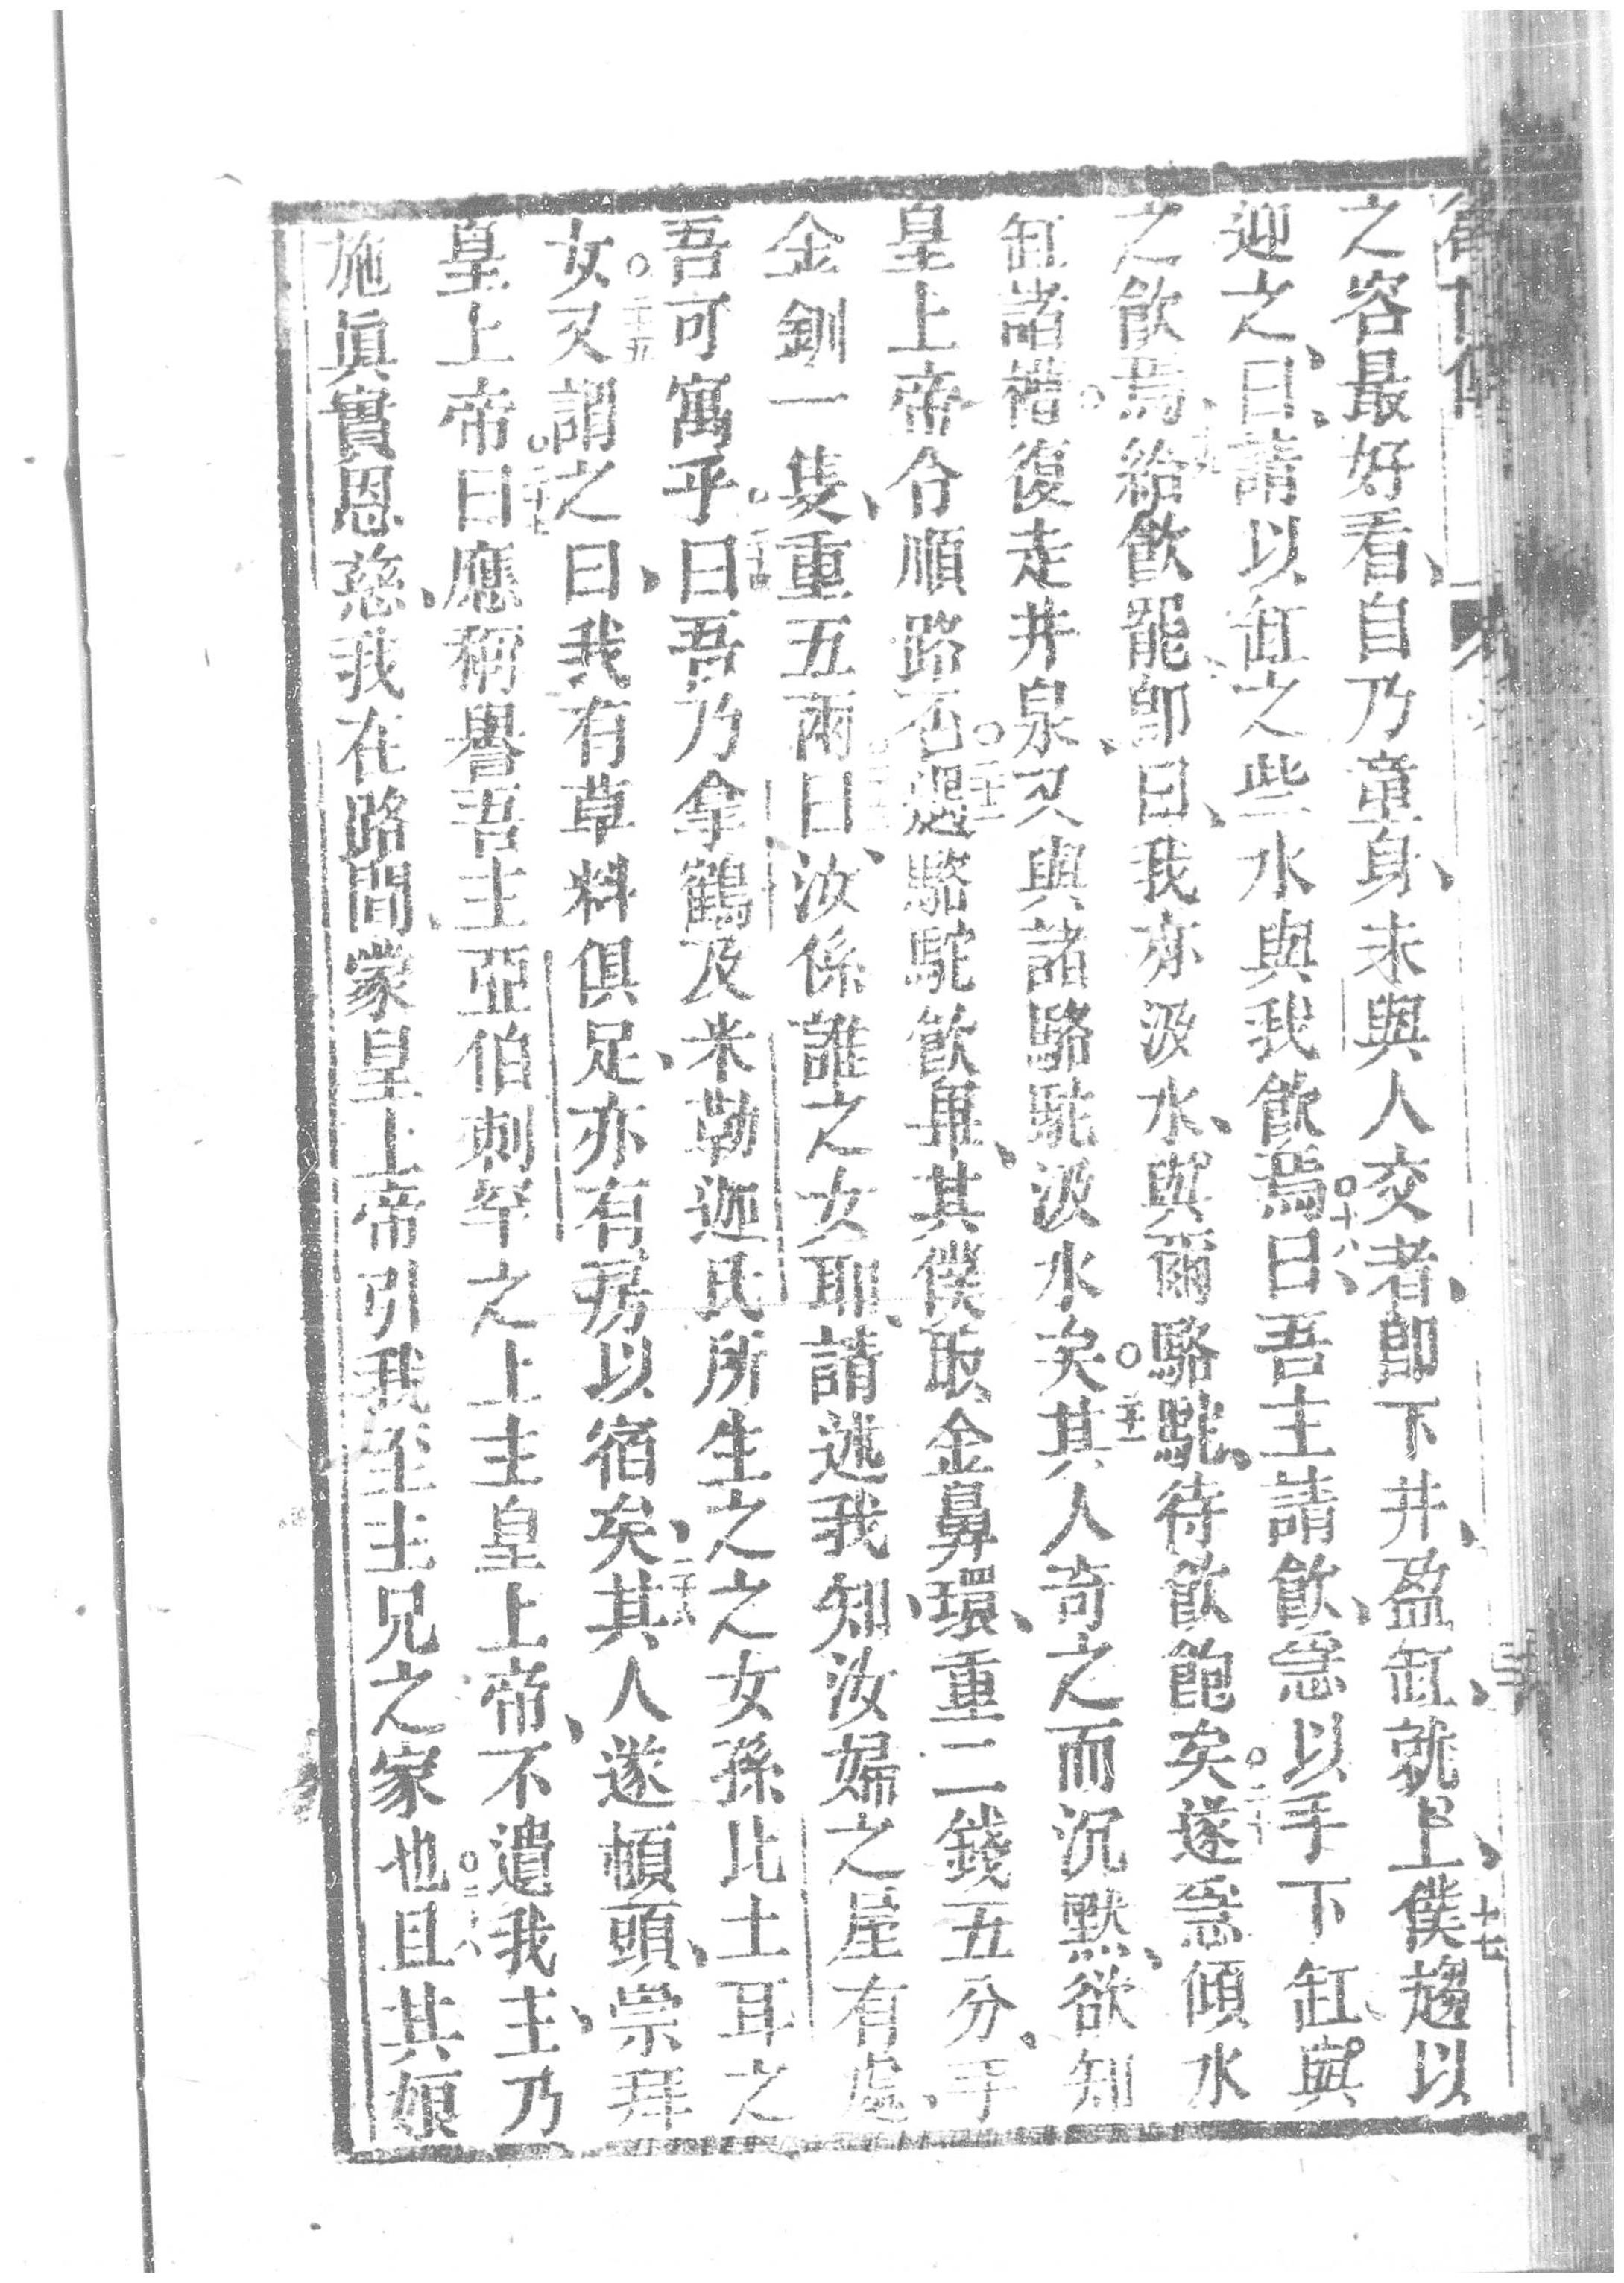 之容最好看、自乃童身、未與人交者、卽下井、盈缸、就上、○十七僕趨以
迎之、曰、請以缸之些水與我飲焉、○十八曰、吾主請飲、急以手下缸、與
之飲焉、○十九給飲罷、卽曰、我亦汲水、與爾駱駝、待飲飽矣、○二十遂急傾水
缸諸槽。復走井泉、又與諸駱駝汲水矣、○二十一其人奇之而沉默、欲知
皇上帝令順路否、○二十二迨駱駝飲畢、其僕取金鼻環、重二錢五分、手
金釧一隻、重五兩、○二十三曰、汝係誰之女耶、請述我知、汝婦之屋有處、
吾可寓乎、○二十四曰、吾乃拿鶴及米勒迦氏所生之之女孫、比土耳之
女、○二十五又謂之曰、我有草料俱足、亦有房以宿矣、○二十六其人遂頓頭、崇拜
皇上帝、○二十七曰、應稱譽吾主亞伯剌罕之上主皇上帝、不遺我主、乃
施眞實恩慈、我在路間、蒙皇上帝引我至主兄之家也、○二十八且其娘